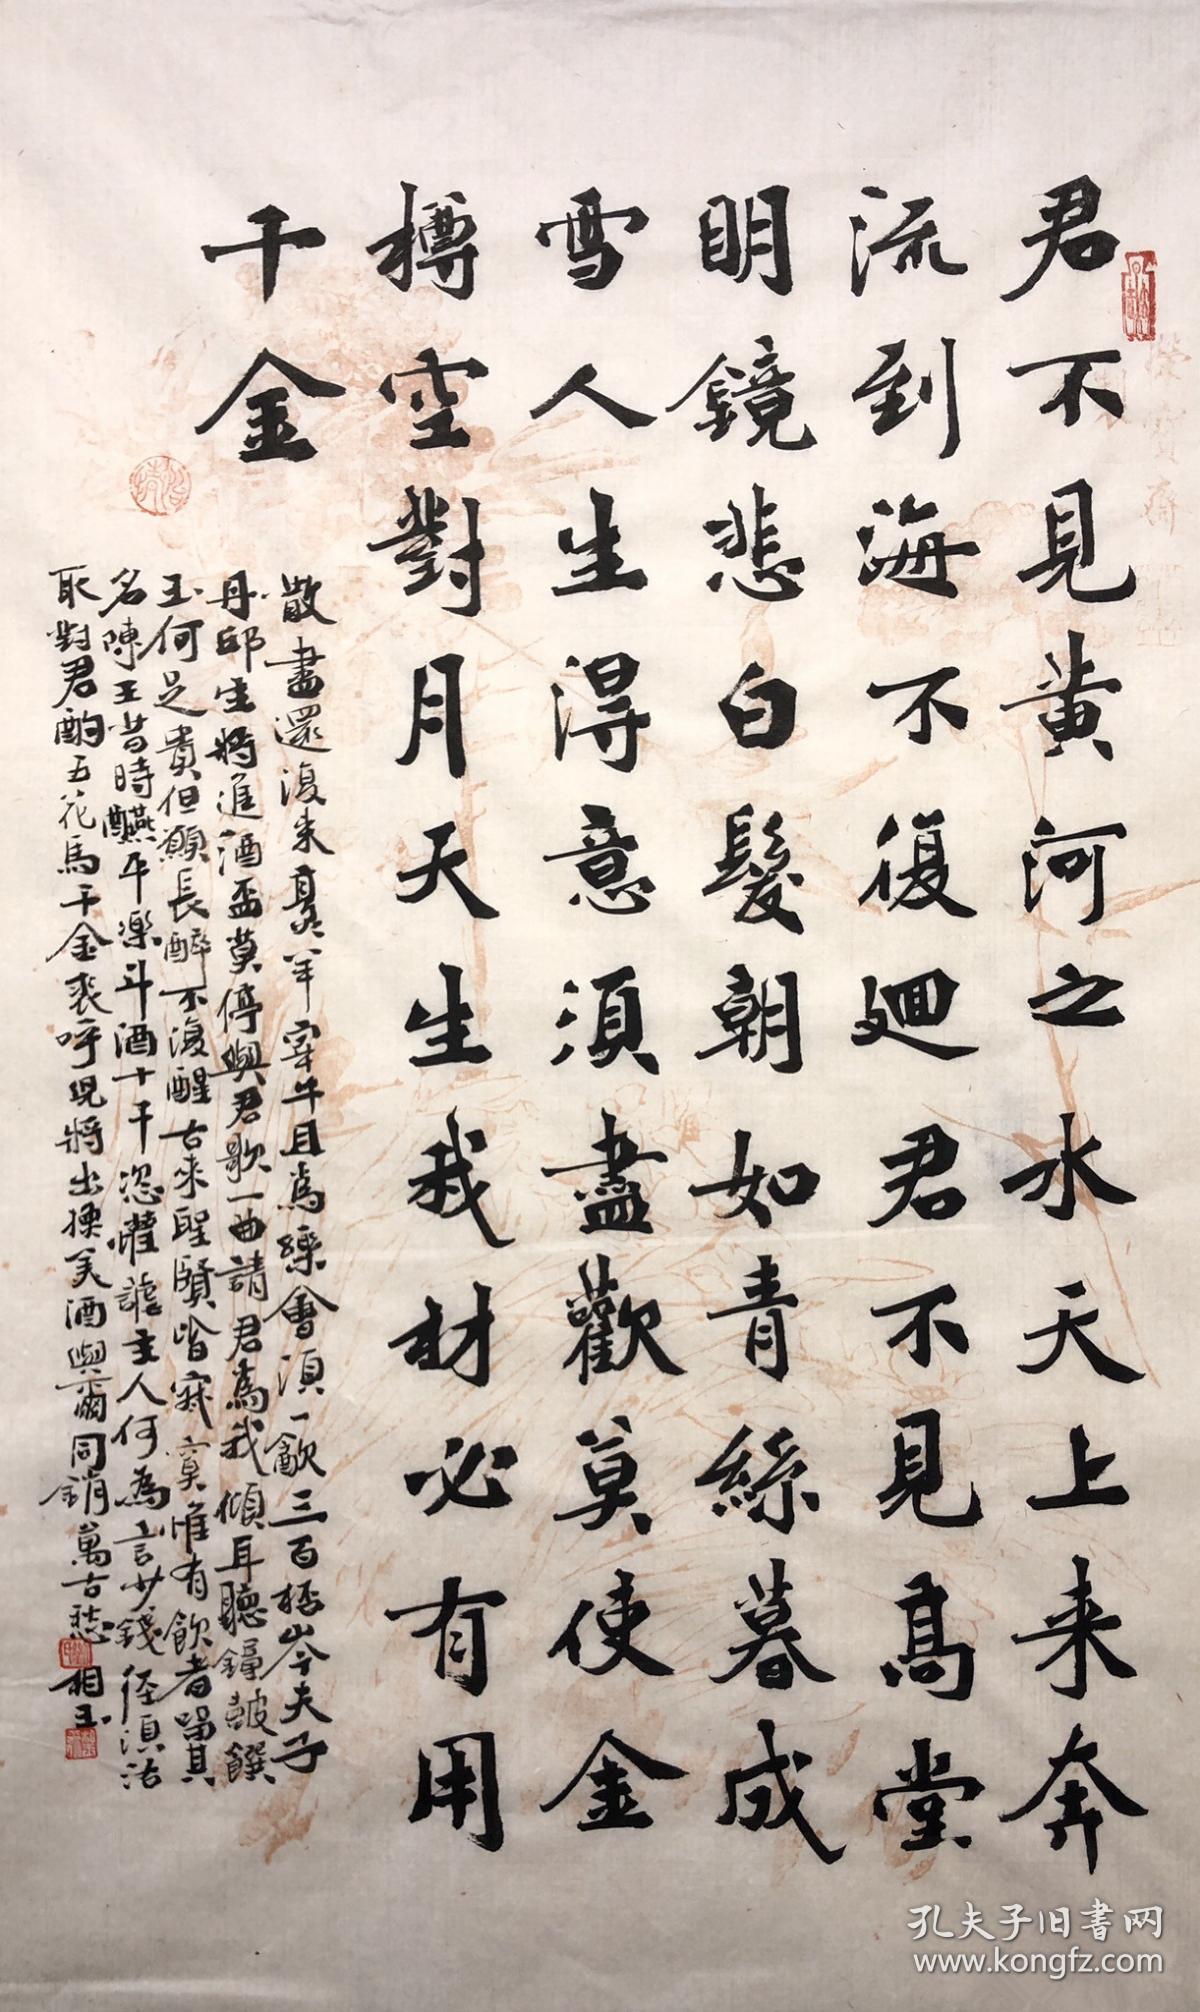 君不見黃河之水天上来奔
流到海不復廻君不見高堂
明鏡悲白髮朝如青絲暮成
雪人生得意須盡歡莫使金
樽空對月天生我材必有用
千金
散盡還復来烹羊宰牛且爲樂會須一飲三百桮岑夫子
丹邱生將進酒盃莫停與君歌一曲請君爲我傾耳聽鐘鼓饌
玉何足貴但願長醉不復醒古来聖賢皆寂寞惟有飲者留其
名陳王昔時醼平樂斗酒十千恣懽謔主人何為言少錢徑須沽
取對君酌五花馬千金裘呼兒將出換美酒與爾同銷萬古愁 相玉
孔夫子旧书网
www.kongfz.com